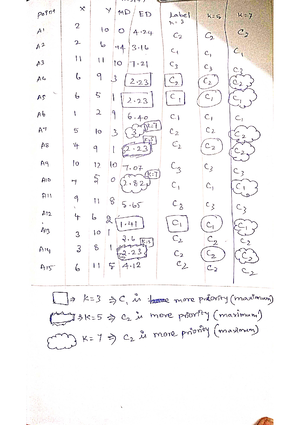 Point X Y MD ED Label k=3 k=5 k=7
A1 2 10 0 4.24 C2 C2 C2
A2 2 6 4 3.16 C1 C1 C1
A3 11 11 10 7.21 C3 C3 C3
A4 6 9 3 2.23 C2 C2 C2
A5 6 5 1 2.23 C1 C1 C1
A6 1 2 9 6.40 C1 C1 C1
A7 5 10 3 3 k=7 C2 C2 C2
A8 4 9 1 2.23 C2 C2 C2
A9 10 12 10 7.07 C3 C3 C3
A10 7 5 0 2.82 k=7 C1 C1 C1
A11 9 11 8 5.65 C3 C3 C3
A12 4 6 2 1.41 C1 C1 C1
A13 3 10 1 C2 C2 C2
A14 3 8 1 2.23 k=5 C2 C2 C2
A15 6 11 5 4.12 C2 C2 C2
k=3 ⇒ C1 is more priority (maximum)
⇒ k=5 ⇒ C2 is more priority (maximum)
k=7 ⇒ C2 is more priority (maximum)